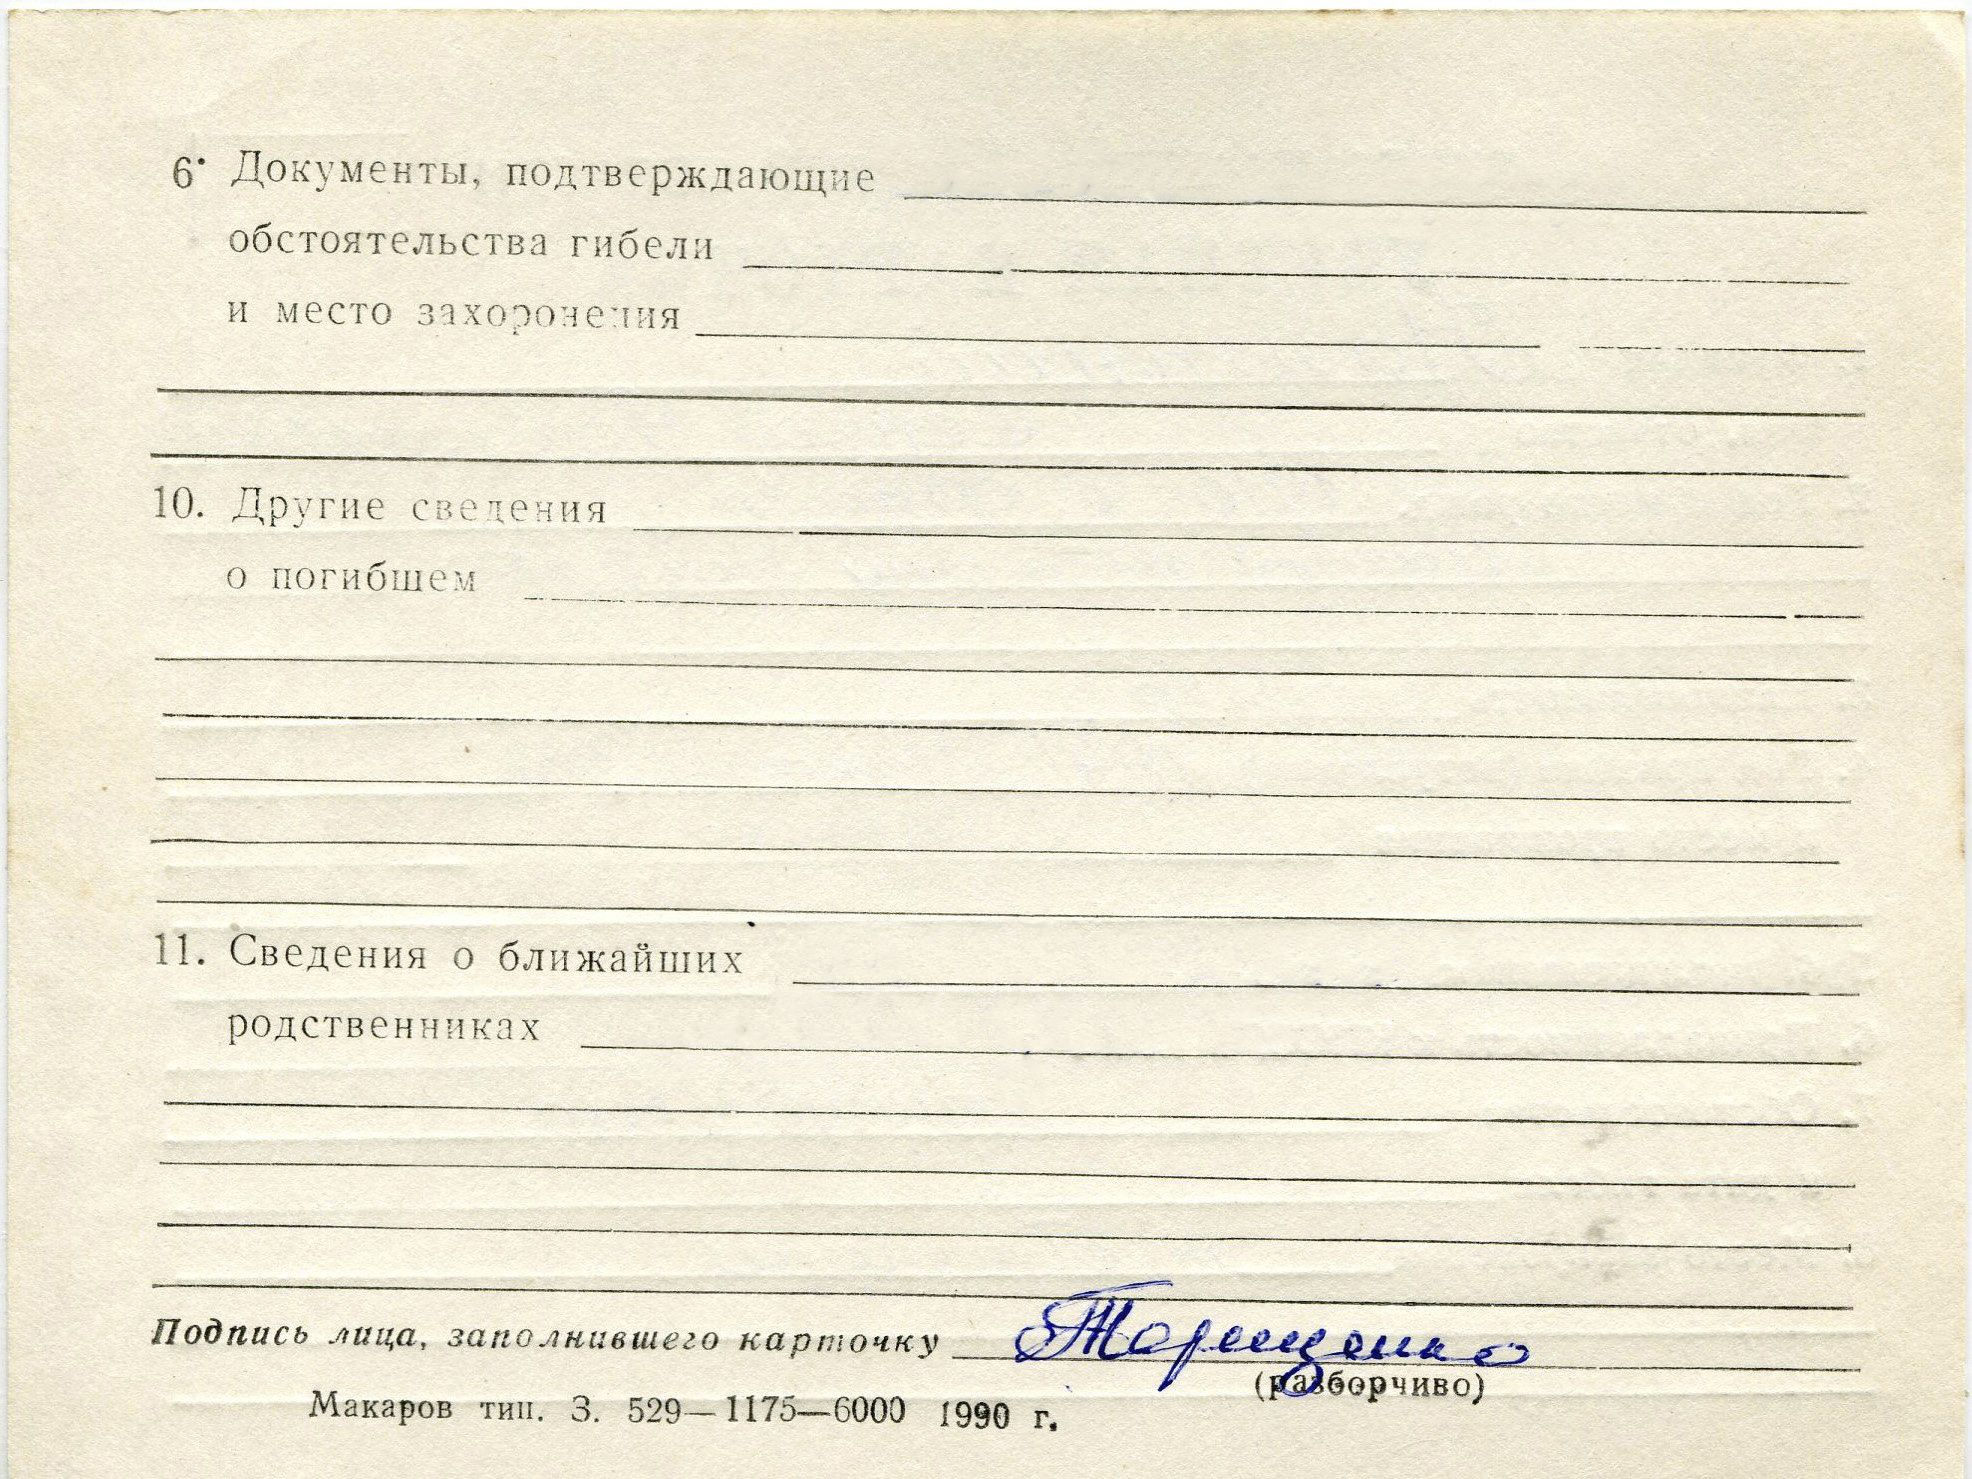 6. Документы, подтверждающие
обстоятельства гибели
и место захоронения
10. Другие сведения
о погибшем
11. Сведения о ближайших
родственниках
Подпись лица, заполнившего карточку Терещенко
(разборчиво)
Макаров тип. З. 529—1175—6000 1990 г.